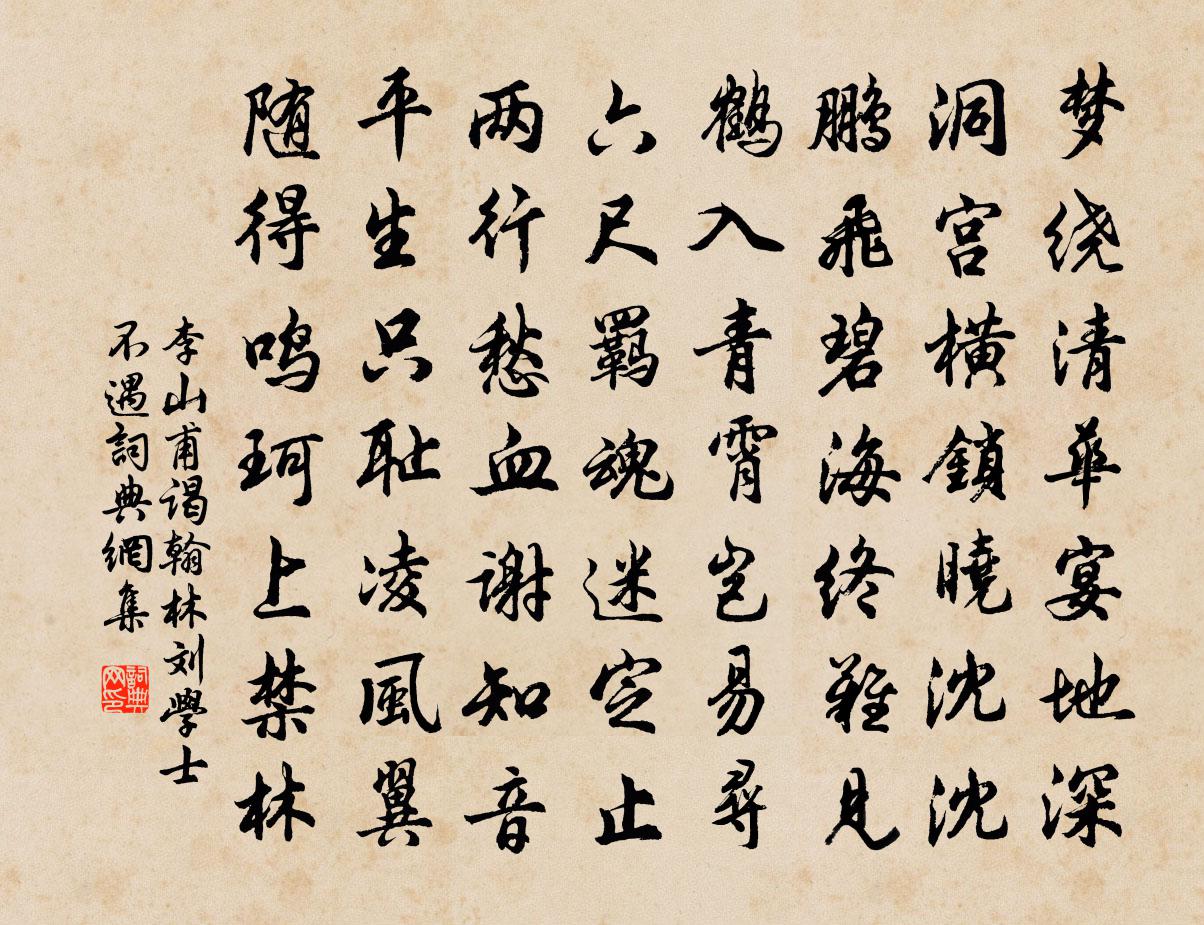 梦绕清華宴地深
洞宫橫鎖曉沈沈
鹏飛碧海终難見
鶴入青霄岂易尋
六尺羁魂迷定止
两行愁血谢知音
平生只耻凌風翼
随得鸣珂上禁林
李山甫谒翰林刘學士
不遇詞典網集
詞典
网印